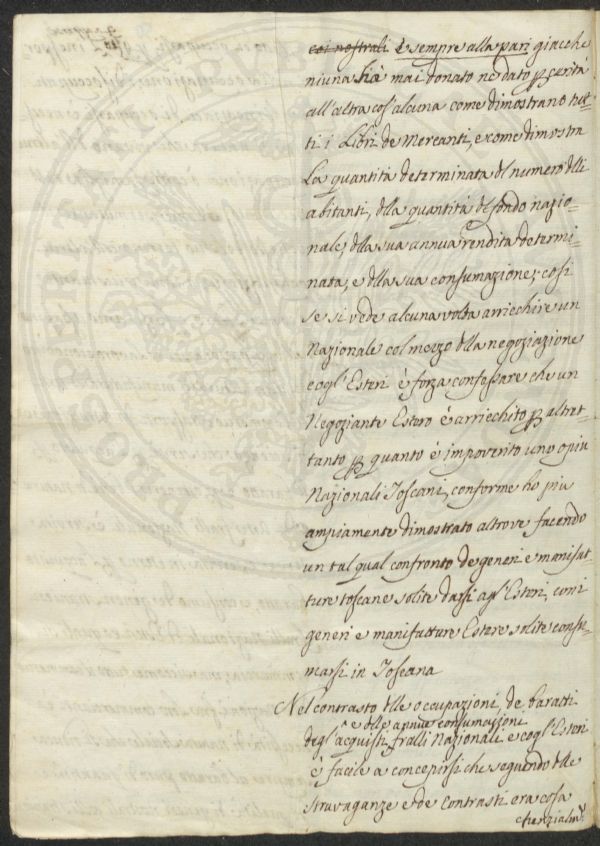 coi nostrali è sempre alla pari giacche
niuna hà mai donato ne dato p carità
all'altra cos'alcuna come dimostrano tut=
ti i Libri de Mercanti, e come dimostra
La quantità determinata dl numero dlli
abitanti, dlla quantità dl fondo nazio=
nale, dlla sua annua rendita determi=
nata, e dlla sua consumazione; così
se si vede alcuna volta arricchire un
Nazionale col mezzo dlla negoziazione
cogl'Esteri è forza confessare che un
Negoziante Estero è arricchito p altret=
tanto p quanto è impoverito uno o piu
Nazionali Toscani, conforme hò piu
ampiamente dimostrato altrove facendo
un tal qual confronto de generi e manifat
ture toscane solite darsi agl'Esteri, con i
generi e manifatture Estere solite consu=
marsi in Toscana
Nel contrasto dlle occupazioni, de baratti
e dlle annue consumazioni
degl'acquisti fralli Nazionali e cogl'Esteri
è facile a concepirsi che seguendo dlle
stravaganze e de contrasti era cosa